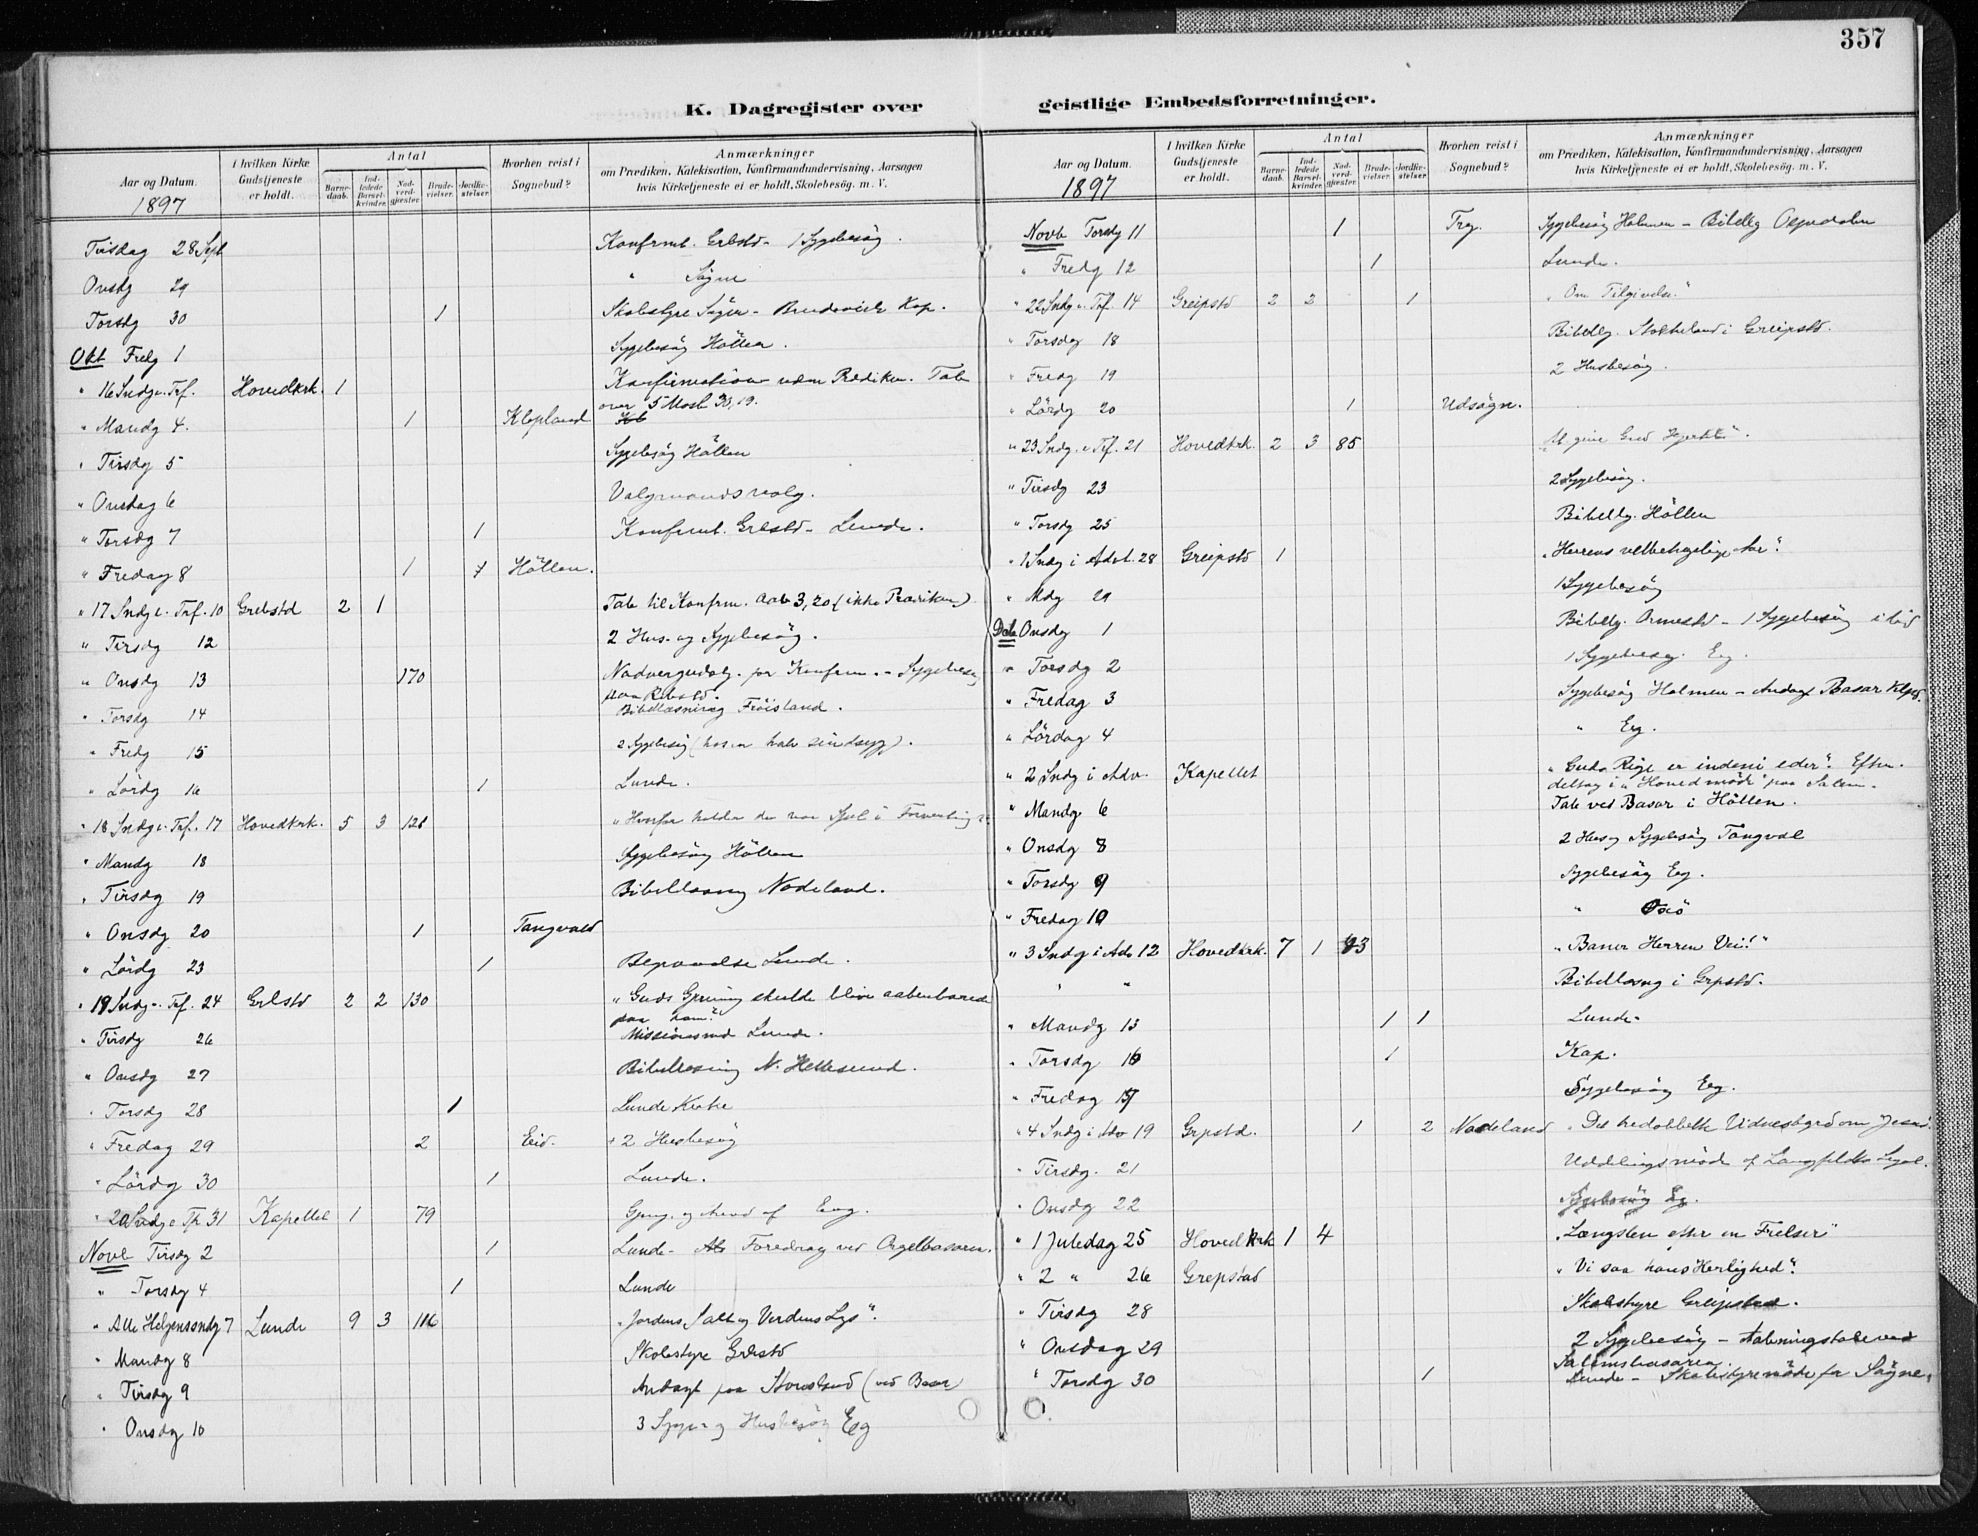 357
K. Dagregister over geistlige Embedsforretninger.
Aar og Datum. 1897
I hvilken Kirke Gudstjeneste er holdt.
Antal
Barnedaab.
Indledede Barselkvinder.
Nadverdgjester.
Brudevielser.
Jordfæstelser.
Hvorhen reist i Sognebud?
Anmærkninger
om Prædiken, Katekisation, Konfirmandundervisning, Aarsagen
hvis Kirketjeneste ei er holdt, Skolebesøg. m. V.
Tirsdag 28 Sept Konfrmt. Grbstd - 1 Sygebesøg.
Onsdg 29 " Søgne
Torsdg 30 1 Skolestyre Søgne - Brudevielse Kap.
Okt Fredg 1 Sygebesøg Høllen.
" 16 Sndg e. Trf. Hovedkrk. 1 Konfirmation uden Prædiken. Tale
over 5 Moseb 30,19.
" Mandg 4. 1 Klepland
" Tirsdg 5 Sygebesøg Høllen
" Onsdag 6 Valgmandsvalg.
" Torsdg 7 1 Konfrmt. Grbstd - Lunde.
" Fredag 8 1 1 Høllen.
" 17 Sndg e. Trf. 10 Grebstd 2 1 Tale til Konfrm. Aab 3,20 (ikke Prædiken)
" Tirsdg 12 2 Hus- og Sygebesøg.
" Onsdg 13 170 Nadvergudstj. for Konfrm. - Sygebesøg
paa
" Torsdg 14 Bibellæsning Frøisland.
" Fredg 15 2 Sygebesøg (hos en halv sindsyg).
" Lørdg 16 1 Lunde.
" 18 Sndg e. Trf. 17 Hovedkrk. 5 3 128 "Hvorfor holder du min Sjæl i Forventning?"
" Mandg 18 Sygebesøg Høllen
" Tirsdg 19 Bibellæsng Nodeland.
" Onsdg 20 1 Tangvald
" Lørdg 23 1 Begravelse Lunde.
" 19 Sndg e. Trf. 24 Grbstd 2 2 130 "Guds Gjerning skulde blive aabenbarede
paa ham."
" Tirsdg 26 Missionsmd Lunde.
" Onsdg 27 Bibellæsning N. Hellesund.
" Torsdg 28 1 Lunde Kirke
" Fredag 29 2 Eid. + 2 Husbesøg
" Lørdg 30 1 Lunde.
" 20 Sndg e Tr 31 Kapellet 1 79
Novb Tirsdg 2 1 Lunde - Foredrag ved Orgelbasaren.
" Torsdg 4 1 Lunde
" Alle Helgenssndg 7 Lunde 9 3 116 "Jordens Salt og Verdens Lys".
" Mandg 8 Skolestyre Grbstd
" Tirsdg 9 Andagt paa Stousland (ved Basar)
" Onsdg 10 3 Syge- og Husbesøg Eeg
Aar og Datum. 1897
I hvilken Kirke Gudstjeneste er holdt.
Antal
Barnedaab.
Indledede Barselkvinder.
Nadverdgjester.
Brudevielser.
Jordfæstelser.
Hvorhen reist i Sognebud?
Anmærkninger
om Prædiken, Katekisation, Konfirmandundervisning, Aarsagen
hvis Kirketjeneste ei er holdt, Skolebesøg. m. V.
Novb Torsdg 11 1 Trg. Sygebesøg Holmen - Bibellg
" Fredg 12 1 Lunde.
" 22 Sndg e. Trf. 14 Greipstd 2 2 1 "Om Tilgivelse."
" Torsdag 18 Bibellg. Stokkeland i Greipstd.
" Fredg 19 2 Husbesøg.
" Lørdg 20 1 Udsøgn.
" 23 Sndg. e Trf. 21 Hovedkrk. 2 3 85 "At give Gud Hjertet".
" Tirsdg 23 2 Sygebesøg.
" Torsdg 25 Bibellg. Høllen
" 1 Sndg i Advt. 28 Greipstd 1 "Herrens velbehagelige Aar".
" Mdg 29 1 Sygebesøg
Dcb Onsdg 1 Bibellg. Ormestd - 1 Sygebesøg
" Torsdg 2 1 Sygebesøg. Eeg.
" Fredag 3 Sygebesøg Holmen - Andagt Basar Klpd.
" Lördag 4 " Eeg.
" 2 Sndg i Adv. Kapellet "Guds Rige er indeni eder". Efter.
deltog i "Hovedmøde" paa Salem.
" Mandg 6 Tale ved Basar i Høllen.
" Onsdg 8 2 Hus og Sygebesøg Tangval
" Torsdg 9 Sygebesøg Eeg.
" Fredag 10 "
" 3 Sndg i Adv 12 Hovedkrk. 7 1 93 "Baner Herren Vei!"
" " Bibellæsng i Grpstd.
" Mandg 13 1 1 Lunde.
" Torsdg 16 1 Kap.
" Fredag 17 Sygebesøg Eeg.
" 4 Sndg i Adv 19 Grpstd. 1 2 Nodeland "Det tredobbelte Vidnesbyrd om Jesus".
" Tirsdg. 21 Uddelingsmøde af Langfeldts Legat.
" Onsdg 22 Sygebesøg Eg.
" 1 Juledag 25 Hovedkrk 1 4 "Længslen efter en Frelser"
" 2 " 26 Grepstad "Vi saa hans Herlighed".
" Tirsdg 28 Skolestyre Greipstad.
" Onsdag 29 2 Sygebesøg - Aabningstale ved
Salemsbasaren.
" Torsdg 30 1 Lunde - Skolestyremøde for Søgne.